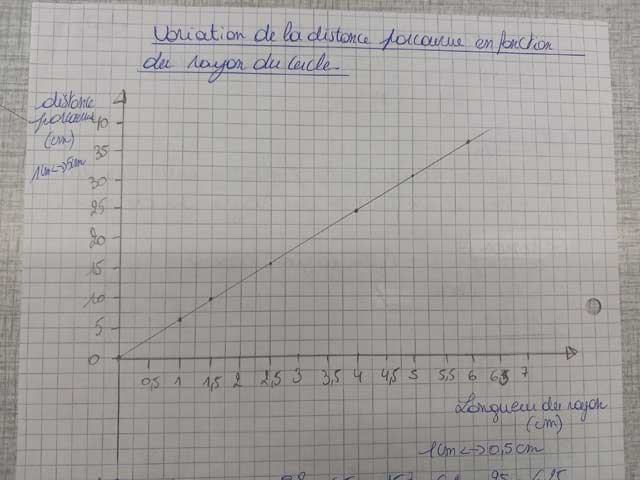 Variation de la distance parcourue en fonction
du rayon du cercle
distance
parcourue
(cm)
1cm <-> 5cm
40
35
30
25
20
15
10
5
0
0,5 1 1,5 2 2,5 3 3,5 4 4,5 5 5,5 6 6,5 7
Longueur du rayon
(cm)
1cm <-> 0,5cm